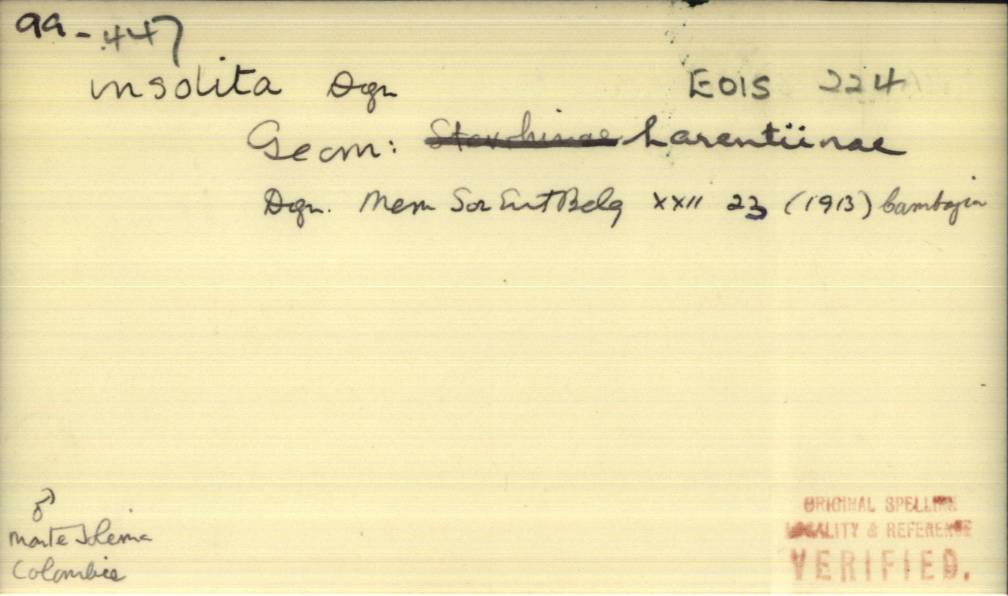 99-447
insolita Dgn EOIS 224
Geom: Sterrhinae Larentiinae
Dgn. Mem Soc Ent Belg XXII 23 (1913) Cambogia
♂
Monte Tolima
Colombie
ORIGINAL SPELLING
LOCALITY & REFERENCE
VERIFIED.